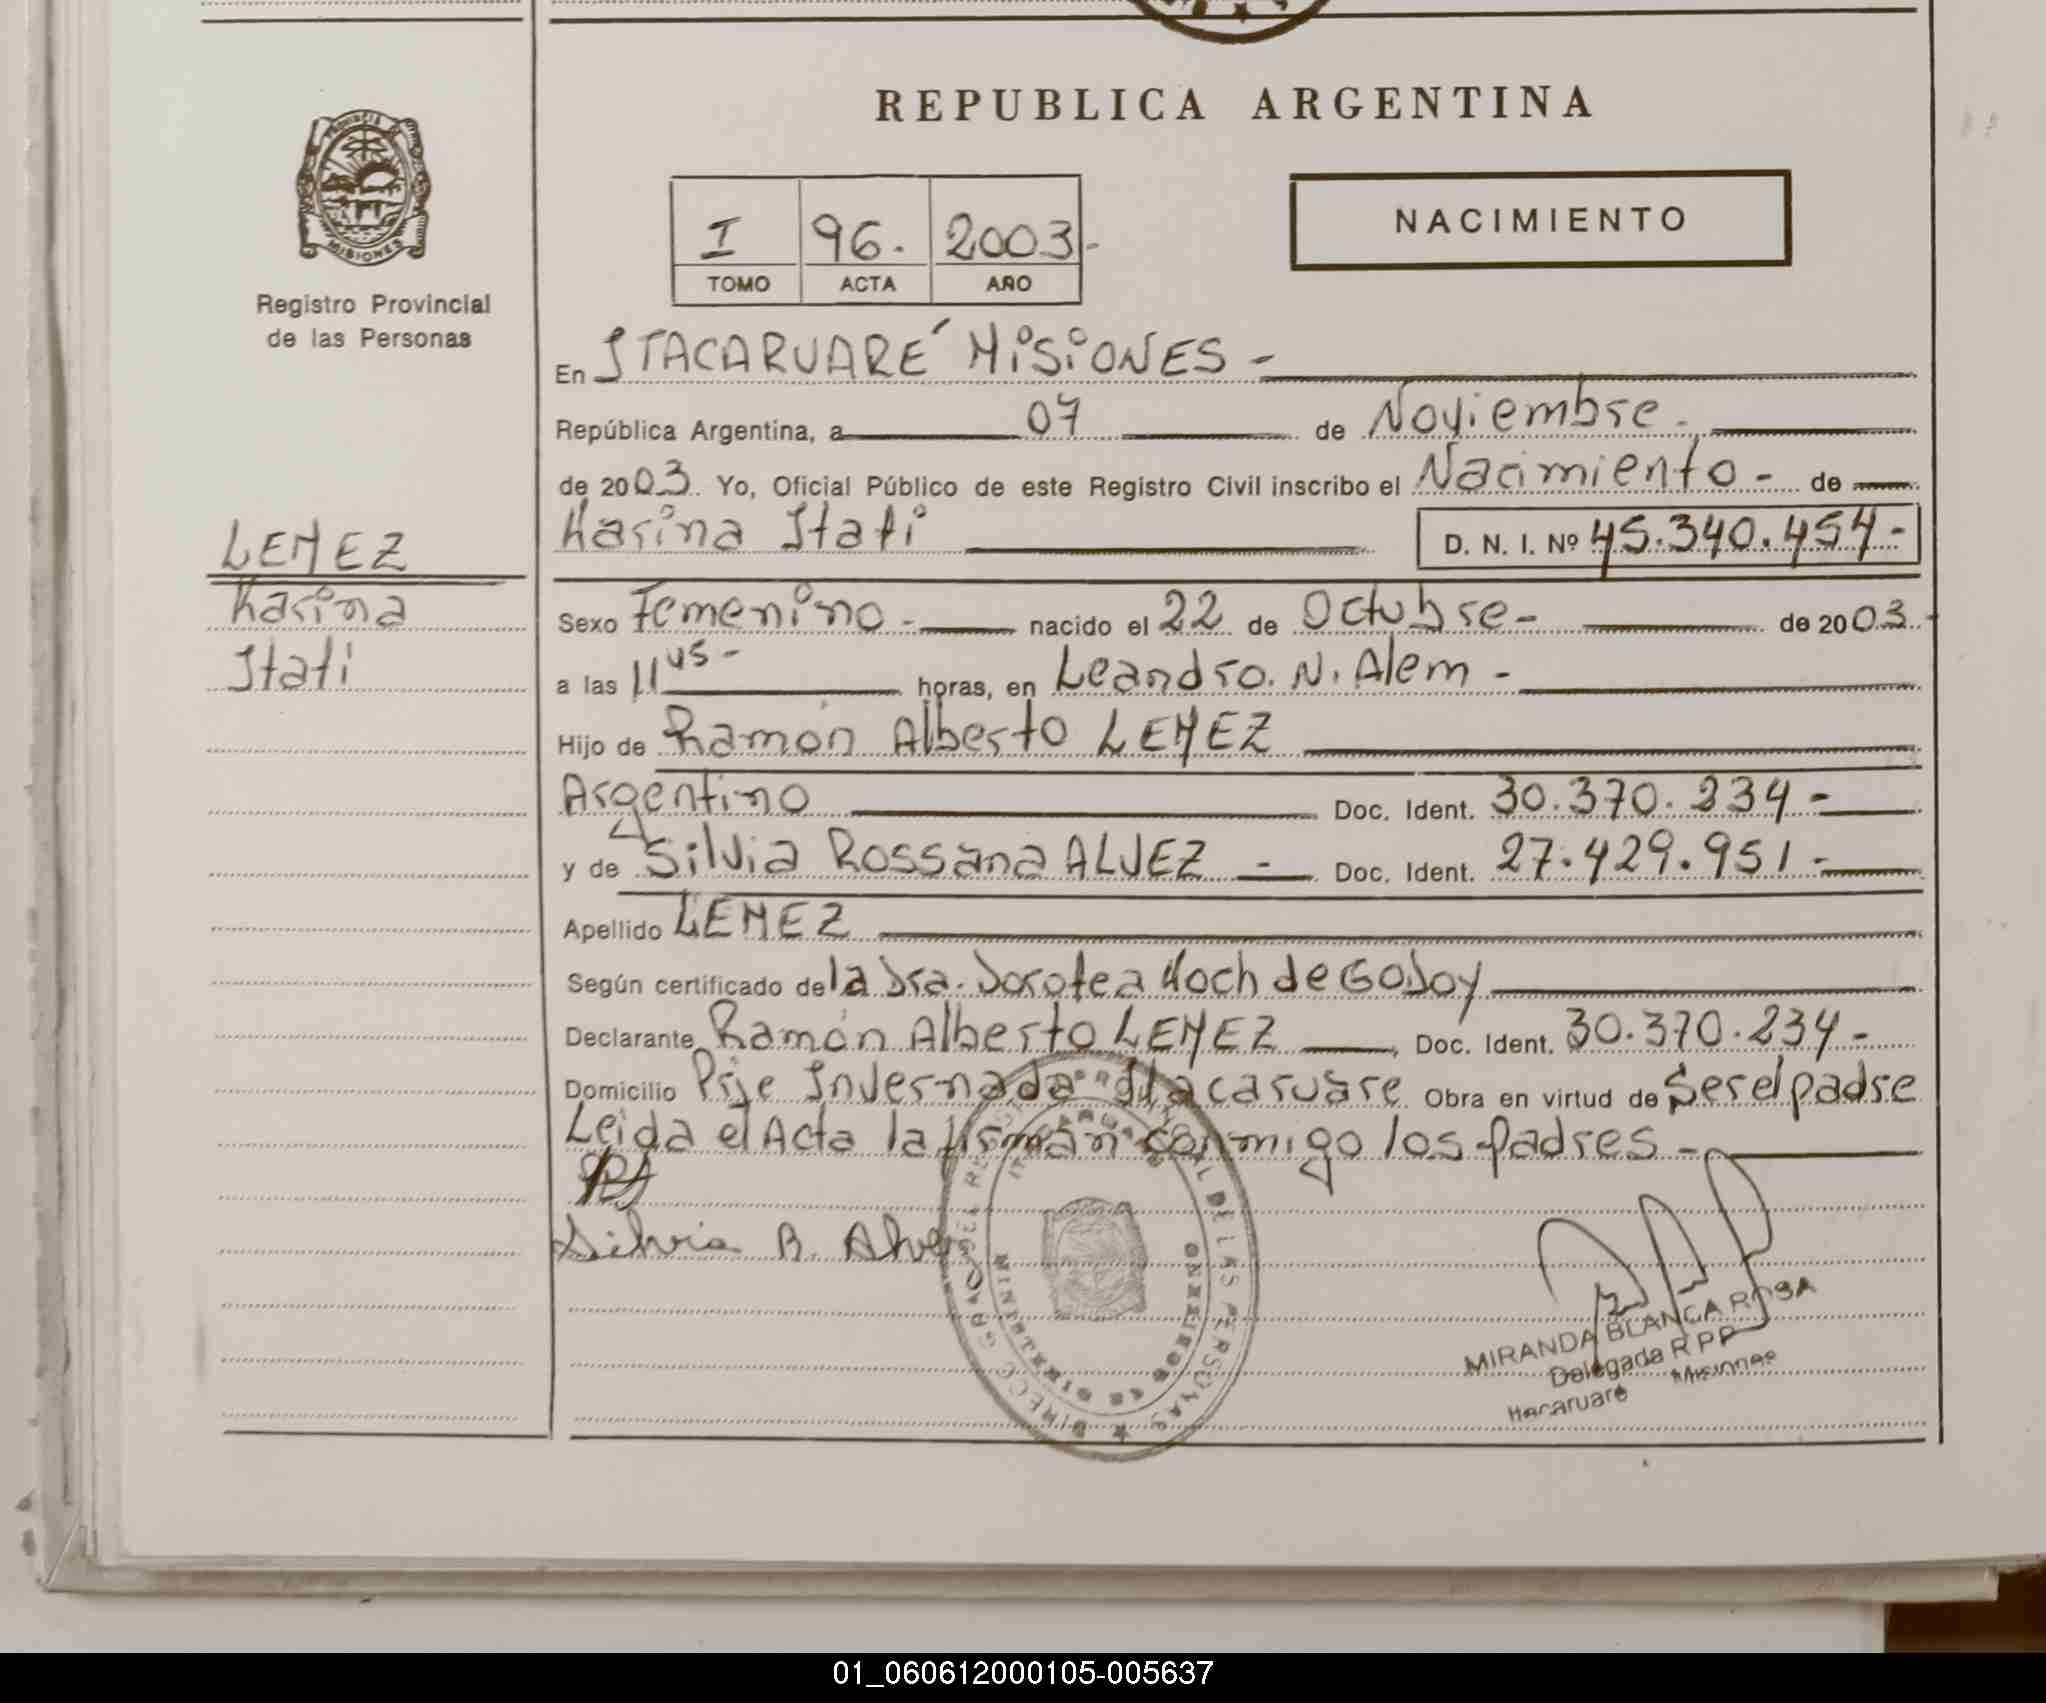 REPUBLICA ARGENTINA
PROVINCIA DE
MISIONES
Registro Provincial
de las Personas
I 96. 2003-
TOMO ACTA AÑO
NACIMIENTO
En ITACARUARÉ MISIONES -
República Argentina, a 07 de Noviembre -
de 2003. Yo, Oficial Público de este Registro Civil inscribo el Nacimiento - de
Karina Itati D. N. I. Nº 45.340.454-
LEMEZ
Karina
Itati
Sexo Femenino - nacido el 22 de Octubre - de 2003.-
a las 11 45 - horas, en Leandro. N. Alem -
Hijo de Ramón Alberto LEMEZ
Argentino Doc. Ident. 30.370.234-
y de Silvia Rossana ALVEZ - Doc. Ident. 27.429.951-
Apellido LEMEZ
Según certificado de la Dra. Dorotea Koch de Godoy
Declarante Ramón Alberto LEMEZ Doc. Ident. 30.370.234-
Domicilio Pje Invernada Itacaruare Obra en virtud de Ser el padre
Leida el Acta la firman conmigo los padres -
Silvia R. Alvez
MIRANDA BLANCA ROSA
Delegada R P P
Itacaruaré Misiones
01_060612000105-005637